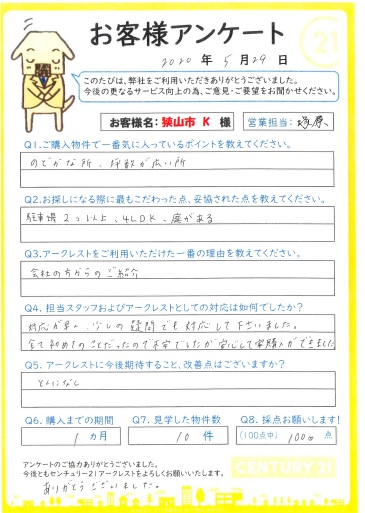 お客様アンケート
21
2020 年 5 月 29 日
このたびは、弊社をご利用いただきありがとうございました。
今後の更なるサービス向上の為、ご意見・ご要望をお聞かせください。
お客様名：狭山市 K 様
営業担当：塚原
Q1.ご購入物件で一番気に入っているポイントを教えてください。
のどかな所、坪数が広い所
Q2.お探しになる際に最もこだわった点、妥協された点を教えてください。
駐車場2つ以上、4LDK、庭がある
Q3.アークレストをご利用いただけた一番の理由を教えてください。
会社の方からのご紹介
Q4. 担当スタッフおよびアークレストとしての対応は如何でしたか？
対応が早く、少しの疑問でも対応して下さいました。
全て初めてのことだったので不安でしたが安心して購入ができました
Q5. アークレストに今後期待すること、改善点はございますか？
とくになし
Q6. 購入までの期間
1 カ月
Q7. 見学した物件数
10 件
Q8. 採点お願いします！
(100点中) 100 点
アンケートのご協力ありがとうございました。
今後ともセンチュリー21アークレストをよろしくお願いいたします。
ありがとうございました。
CENTURY 21